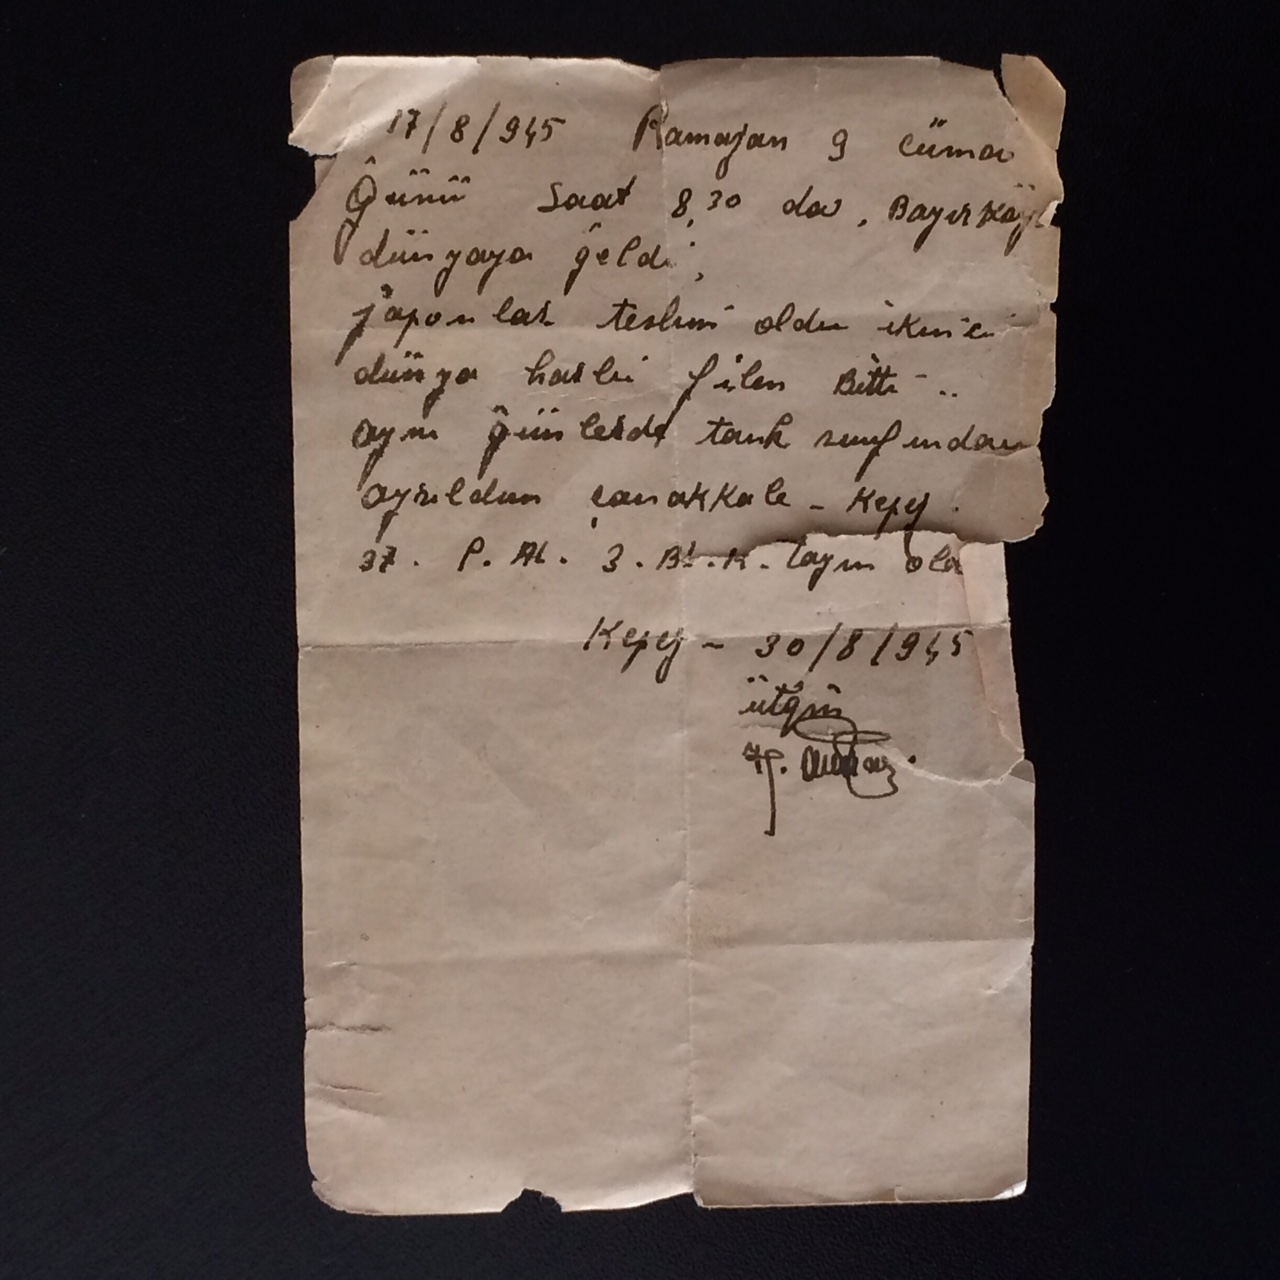 17/8/945 Ramazan 9 cüma
Günü Saat 8,30 da, Bayırköy
dünyaya geldi,
japonlar teslim oldu ikinci
dünya harbi filen Bitti ..
aynı günlerde tank sınıfından
ayrıldım çanakkale - Kepez.
37. P. Al. 3. Bl. K. tayin old
Kepez - 30/8/945
ütğm